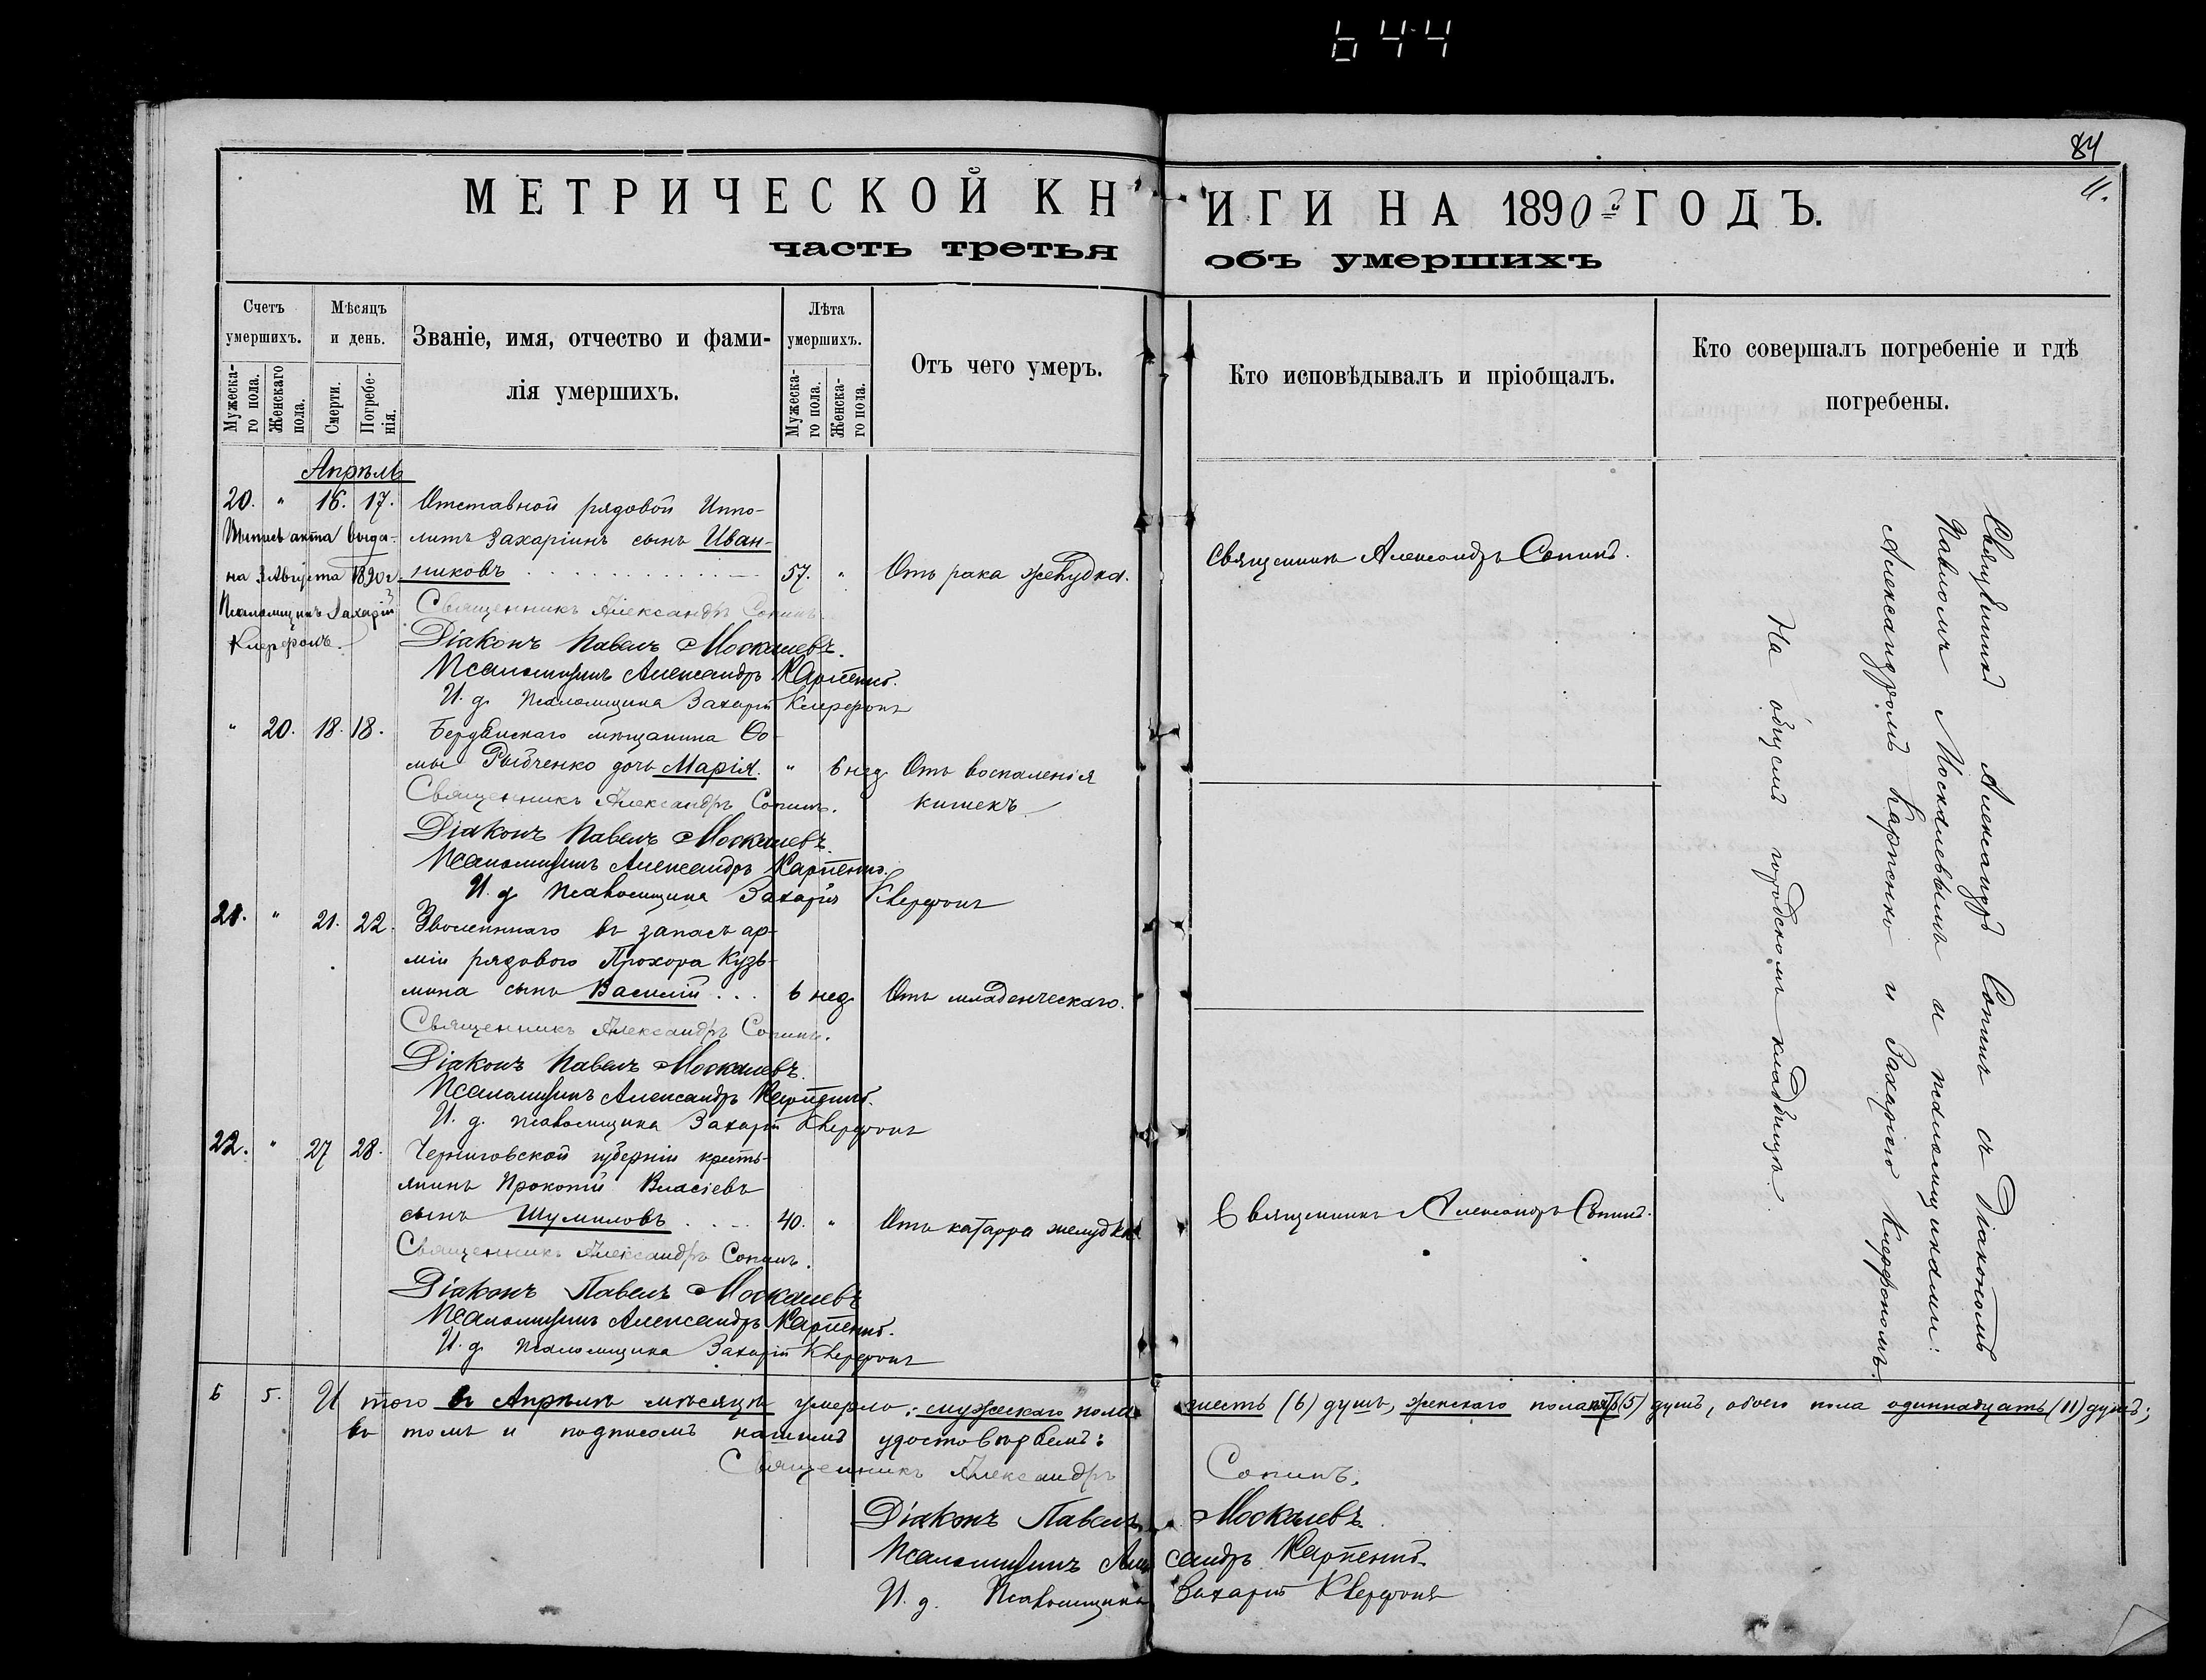 644
84
11.
МЕТРИЧЕСКОЙ КНИГИ НА 1890й ГОДЪ.
часть третья объ умершихъ
Счетъ умершихъ.
Мужескаго пола.
Женскаго пола.
Мѣсяцъ и день.
Смерти.
Погребенія.
Званіе, имя, отчество и фамилія умершихъ.
Лѣта умершихъ.
Мужескаго пола.
Женскаго пола.
Отъ чего умеръ.
Кто исповѣдывалъ и пріобщалъ.
Кто совершалъ погребеніе и гдѣ погребены.
Апрѣль
20. " 16. 17. Отставной рядовой Иппо-
литъ Захаріинъ сынъ Иван-
никовъ 57. " Отъ рака желудка. Священникъ Александръ Сопинъ.
Выпись акта выда-
на 3 Августа 1890 г.
Псаломщикъ Захарій
Священникъ Александръ Сопинъ.
Діаконъ Павелъ Москалевъ.
Псаломщикъ Александръ Карпенко.
И. д. псаломщика Захарій
" 20. 18. 18. Бердянскаго мѣщанина Ѳо-
мы Рыбченко дочь Марія. " 6 нед. Отъ воспаленія
кишекъ.
Священникъ Александръ Сопинъ.
Діаконъ Павелъ Москалевъ.
Псаломщикъ Александръ Карпенко.
И. д. псаломщика Захарій
21. " 21. 22. Уволеннаго въ запасъ ар-
міи рядового Прохора Кузь-
мина сынъ Василій . . . 6 нед. Отъ младенческаго.
Священникъ Александръ Сопинъ.
Діаконъ Павелъ Москалевъ.
Псаломщикъ Александръ Карпенко.
И. д. псаломщика Захарій
22. " 27 28. Черниговской губерніи кресть-
янинъ Прокопій Власіевъ
сынъ Шумиловъ 40. " Отъ катарра желудка Священникъ Александръ Сопинъ.
Священникъ Александръ Сопинъ.
Діаконъ Павелъ Москалевъ
Псаломщикъ Александръ Карпенко.
И. д. псаломщика Захарій
Священникъ Александръ Сопинъ съ Діакономъ
Павломъ Москалевымъ и псаломщиками:
Александромъ Карпенко и Захаріею
На общемъ городскомъ кладбищѣ.
6 5. И того въ Апрѣлѣ мѣсяцѣ умерло: мужескаго пола шесть (6) душъ, женскаго пола пять (5) душъ, обоего пола одиннадцать (11) душъ;
въ томъ и подписомъ нашимъ удостовѣряемъ:
Священникъ Александръ Сопинъ.
Діаконъ Павелъ Москалевъ.
Псаломщикъ Александръ Карпенко.
И. д. Псаломщика Захарій